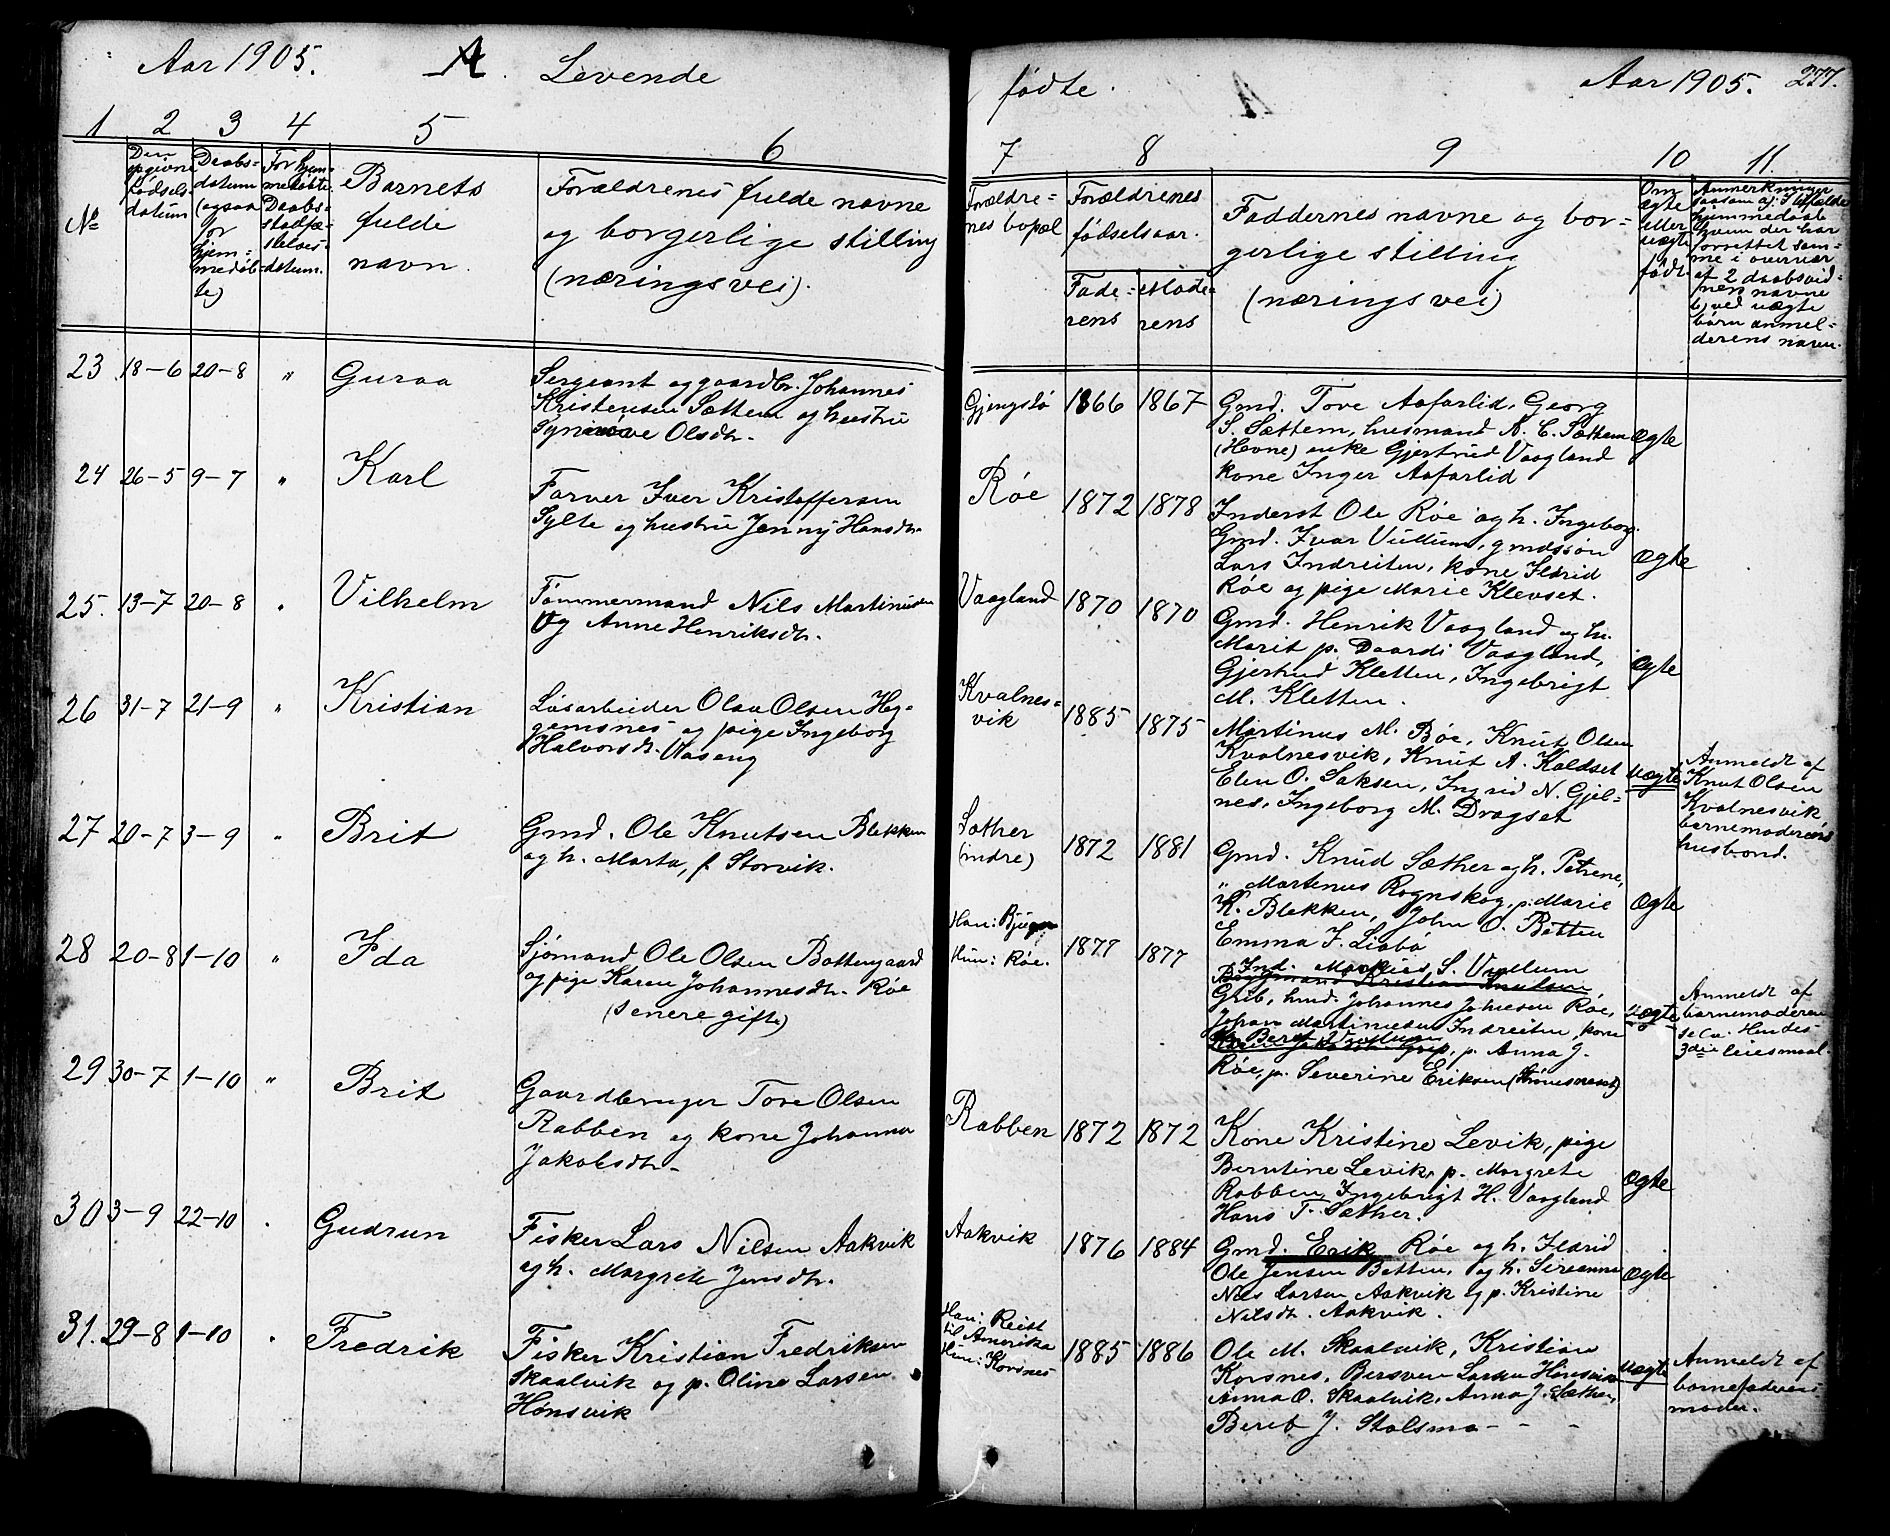 Aar 1905. A. Levende
1 2 3 4 5 6
№
Den
opgivne
fødsels-
datum
Daabs-
datum
(ogsaa
for
hjem-
medøb-
te)
For hjem-
medøbte:
Daabs-
stadfæ-
stelses-
datum.
Barnets
fulde
navn.
Forældrenes fulde navne
og borgerlige stilling
(næringsvei).
23 18-6 20-8 " Guraa
Sergeant og gaardbr. Johannes
Kristensen Sættem og hustru
Synnøve Olsdtr.
24 26-5 9-7 " Karl
Farver Iver Kristoffersen
Sylte og hustru Jenny Hansdtr.
25. 13-7 20-8 " Vilhelm
Tømmermand Nils Martinusen
og Anne Henriksdtr.
26 31-7 21-9 " Kristian
Løsarbeider Olav Olsen Heg-
gemsnes og pige Ingeborg
Halvorsdtr. Vaseng
27 20-7 3-9 " Brit
Gmd. Ole Knutsen Blekken
og h. Marta, f. Storvik.
28 20-8 1-10 " Ida
Sjømand Ole Olsen Bottengaard
og pige Karen Johannesdtr. Røe
(senere gifte)
29 30-7 1-10 " Brit
Gaardbruger Tore Olsen
Rabben og kone Johanna
Jakobsdtr.
30 3-9 22-10 " Gudrun
Fisker Lars Nilsen Aakvik
og h. Margrete Jensdtr.
31. 29-8 1-10 " Fredrik
Fisker Kristian Fredriksen
Skaalvik og p. Oline Larsen
Hønsvik
fødte. Aar 1905. 277.
7 8 9 10 11.
Forældre-
nes bopæl
Forældrenes
fødselsaar.
Fade-
rens
Mode-
rens
Faddernes navne og bor-
gerlige stilling
(næringsvei)
Om
ægte
eller
uægte
født.
Anmerkninger
saasom a) i tilfælde
hjemmedaab
hvem der har
forrettet sam-
me i overvær
af 2 daabsvid-
ners navne
b) ved uægte
børn anmel-
derens navn.
Gjengstø 1866 1867
Gmd. Tore Aafarlid, Georg
S. Sættem, husmand A. C. Sættem
(Hevne) enke Gjertrud Vaagland
kone Inger Aafarlid
Ægte
Røe 1872 1878
Inderst Ole Røe og h. Ingeborg.
Gmd. Ivar Vullum, gmdssøn
Lars Indreiten, kone Ildrid
Røe og pige Marie Klevset.
Ægte
Vaagland 1870 1870
Gmd. Henrik Vaagland og h.
Marit p. Daardi Vaagland,
Gjertrud Kletten, Ingebrigt
M. Kletten.
Ægte
Kvalnes-
vik 1885 1875
Martinus M. Bøe, Knut Olsen
Kvalnesvik, Knut A. Koldset
Elen O. Saksen, Ingrid N. Gjel-
nes, Ingeborg M. Dragset
Uægte
Anmeldt af
Knut Olsen
Kvalnesvik
barnemoderens
husbond.
Sæther
(indre) 1872 1881
Gmd. Knud Sæther og h. Petrene,
" Martenus Rognskog, p. Marie
K. Blekken, John O. Botten
Emma J. Liabø
Ægte
Han: Bjugn
Hun: Røe. 1877 1877
Ind. S. Vullum
Kristian Knutsen,
Grib, hmd. Johannes Johnsen Røe,
Johan Martinusen Indreiten, kone
Beret Vullum
Grip, p. Anna J.
Røe, p. Severine Eriksen
Uægte
Anmeldt af
barnemoderen
selv. Hendes
3die leiesmaal.
Rabben 1872 1872
Kone Kristine Levik, pige
Berntine Levik, p. Margrete
Rabben, Ingebrigt H. Vaagland
Hans T. Sæther.
Ægte
Aakvik 1876 1884
Gmd. Erik Røe og h. Ildrid
Ole Jensen Botten, og h. Sereanna
Nils Larsen Aakvik og p. Kristine
Nilsdtr. Aakvik.
Ægte
Han: Reist
til Amerika
Hun: Korsnes 1885 1886
Ole M. Skaalvik, Kristian
Korsnes, Bersven Larsen Hønsvik
Anna O. Skaalvik, Anna J. Sæther,
Bereb J. Stolsmo - - -
Uægte
Anmeldt af
barnefaderens
moder.